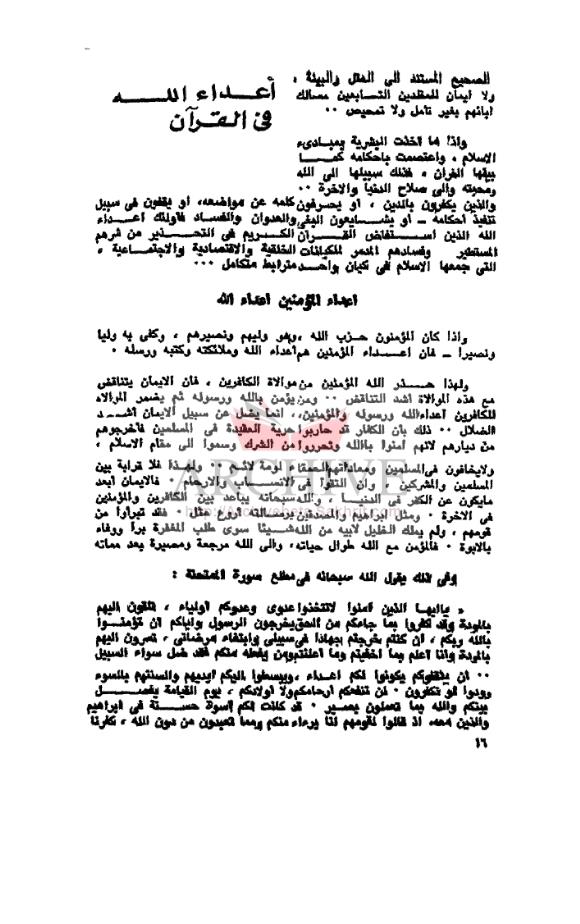 الصحيح المستند الى العقل والبينة ،
ولا ايمان للمقلدين التابعين مسالك
آبائهم بغير تأمل ولا تمحيص ٠٠
أعداء الله
فى القرآن
واذا ما أخذت البشرية بمبادىء
الاسلام ، واعتصمت بأحكامه كما
بينها القرآن ، فذلك سبيلها الى الله
ومحبته والى صلاح الدنيا والآخرة ٠٠
والذين يكفرون بالدين ، أو يحرفون كلمه عن مواضعه، أو يقفون فى سبيل
تنفيذ أحكامه ــ أو يشايعون البغى والعدوان والفساد فأولئك أعداء
الله الذين استفاض القرآن الكريم فى التحذير من شرهم
المستطير وفسادهم المدمر للكيانات الخلقية والاقتصادية والاجتماعية ،
التى جمعها الاسلام فى كيان واحد مترابط متكامل ٠٠٠
أعداء المؤمنين أعداء الله
واذا كان المؤمنون حزب الله ، وهو وليهم ونصيرهم ، وكفى به وليا
ونصيرا ــ فان أعداء المؤمنين هم أعداء الله وملائكته وكتبه ورسله ٠
ولهذا حذر الله المؤمنين من موالاة الكافرين ، فان الايمان يتناقض
مع هذه الموالاة أشد التناقض ٠٠ ومن يؤمن بالله ورسوله ثم يضمر الموالاة
للكافرين أعداء الله ورسوله والمؤمنين، انما يضل عن سبيل الايمان أشد
الضلال ٠٠ ذلك بأن الكفار قد حاربوا حرية العقيدة فى المسلمين فأخرجوهم
من ديارهم لانهم آمنوا بالله وتحرروا من الشرك وسموا الى مقام الاسلام ،
ولا يخافون فى المسلمين ومعاداتهم الحمقاء لومة لائم ٠٠ ولهذا فلا قرابة بين
المسلمين والمشركين ، وان التقوا فى الأنساب والارحام ٠ فالايمان أبعد
مايكون عن الكفر فى الدنيا ، والله سبحانه يباعد بين الكافرين والمؤمنين
فى الآخرة ٠ ومثل ابراهيم والمصدقين برسالته أروع مثل ٠ فقد تبرأوا من
قومهم ، ولم يملك الخليل لأبيه من الله شيئا سوى طلب المغفرة برا ووفاء
بالأبوة ٠ فالمؤمن مع الله طوال حياته، والى الله مرجعه ومصيره بعد مماته
وفى ذلك يقول الله سبحانه فى مطلع سورة الممتحنة :
« ياأيها الذين آمنوا لاتتخذوا عدوى وعدوكم أولياء ، تلقون اليهم
بالمودة وقد كفروا بما جاءكم من الحق يخرجون الرسول واياكم أن تؤمنوا
بالله ربكم ، ان كنتم خرجتم جهادا فى سبيلى وابتغاء مرضاتى ، تسرون اليهم
بالمودة وأنا أعلم بما أخفيتم وما أعلنتم ومن يفعله منكم فقد ضل سواء السبيل
٠٠ ان يثقفوكم يكونوا لكم أعداء ، ويبسطوا اليكم أيديهم وألسنتهم بالسوء
وودوا لو تكفرون ٠ لن تنفعكم أرحامكم ولا أولادكم ، يوم القيامة يفصل
بينكم والله بما تعملون بصير ٠ قد كانت لكم أسوة حسنة فى ابراهيم
والذين معه، اذ قالوا لقومهم انا برءاء منكم ومما تعبدون من دون الله ، كفرنا
١٦
ARCHIVE